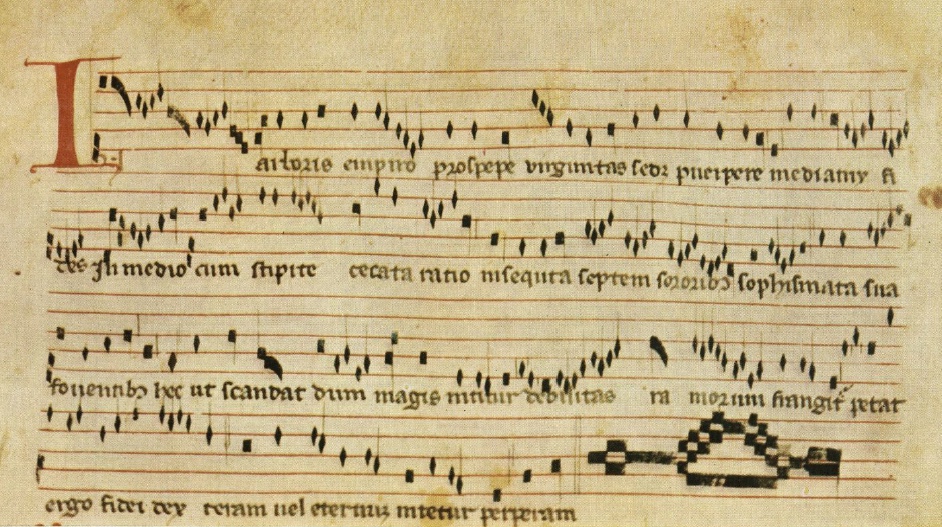 In arboris empiro prospere virginitas sedet puerpere mediatrix fi
des In medio cum stipite cecata ratio insequta septem sororibꝫ sophismata sua
fouentibꝫ hec ut scandat dum magis nititur debilitas ra morum frangitᷣ petat
ergo fidei dex teram uel eternum nitetur perperam